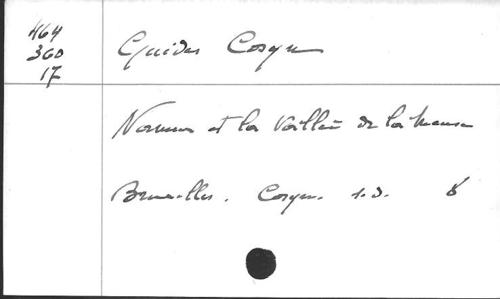 464
360
17
Guides Cosyn
Namur et la Vallée de la Meuse
Bruxelles. Cosyn. s.d. 8